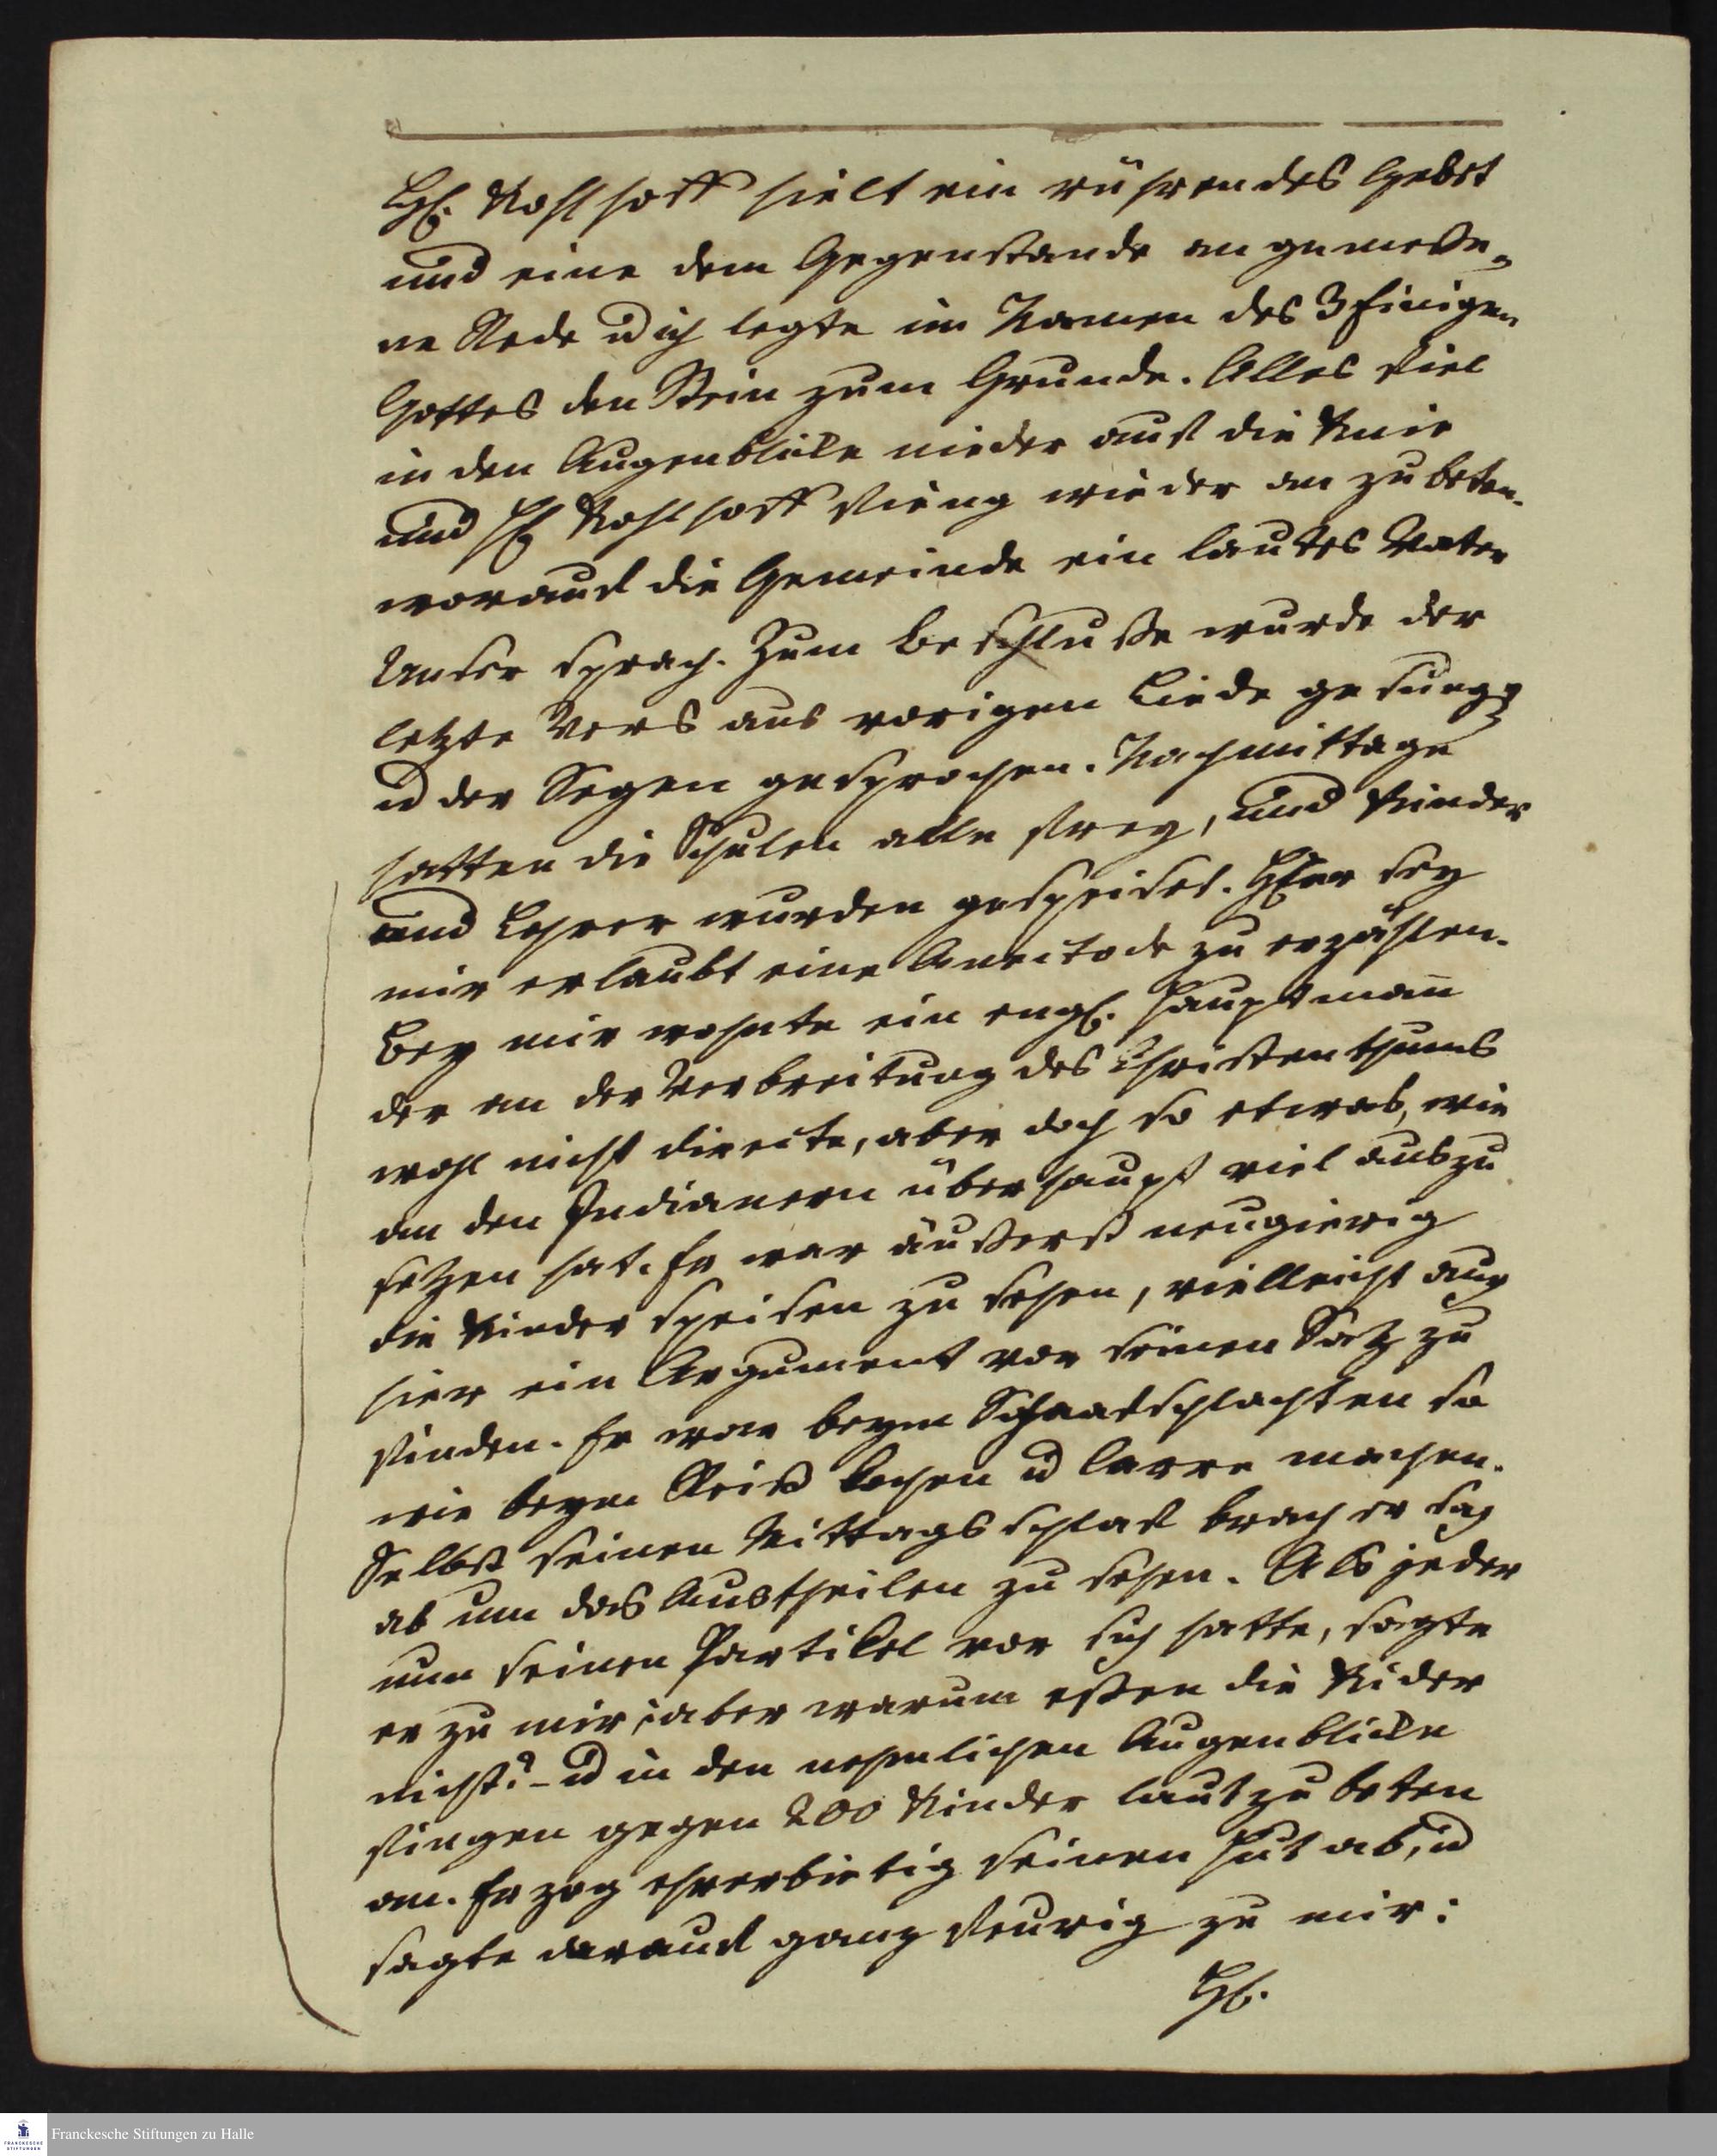 H. Kohlhoff hielt ein rührendes Gebet
und eine dem Gegenstande angemeße-
ne Rede u ich legte im Namen des 3 Einigen
Gottes den Stein zum Grunde. Alles fiel
in den Augenblicke nieder auf die Knie
und H Kohlhoff fieng wieder an zu beten.
worauf die Gemeinde ein lautes Vater
Unser sprach. Zum Beschluße wurde der
letzte Vers aus vorigen Liede gesung
u der Segen gesprochen. Nachmittage
hatten die Schulen alle frey, und Kinder
und Lehrer wurden gespeiset. Hier sey
mir erlaubt eine Anectode zu erzählen.
Bey mir wohnte ein engl. Hauptmañ
der an der Verbreitung des Christenthums
wohl nicht directe, aber doch so etwas, wie
an den Indianern überhaupt viel auszu
setzen hat. Er war äußerst neugierig
die Kinder speisen zu sehen, vielleicht auch
hier ein Argument vor seinen Satz zu
finden. Er war beym Schaafschlachten so
wie beym Reiß kochen u Carre machen.
Selbst seinen Mittagsschlaf brach er sich
ab um das Austheilen zu sehen. Als jeder
nun seinen Partikel vor sich hatte, sagte
er zu mir: aber warum eßen die Kider
nicht? - u in den nehmlichen Augenblicke
fingen gegen 200 Kinder laut zu beten
an. Er zog ehrerbietig seinen Hut ab, u
sagte darauf ganz feurig zu mir:
H.
Franckesche Stiftungen zu Halle
FRANCKESCHE STIFTUNGEN